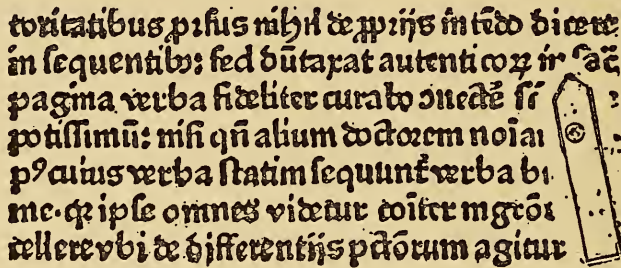 toritatibus prſus nihil de ꝓprijs intēdo dicere
in ſequentibꝫ: ſed dūtaxat autenticoꝝ
pagina verba fideliter curabo ↄnectē
potiſſimū: niſi qn̄ alium doctorem
pꝰ cuius verba ſtatim ſequunt̄ verba
me. qꝛ ipſe omnes videtur coīter
cellere vbi de differentijs pctōrum agitur